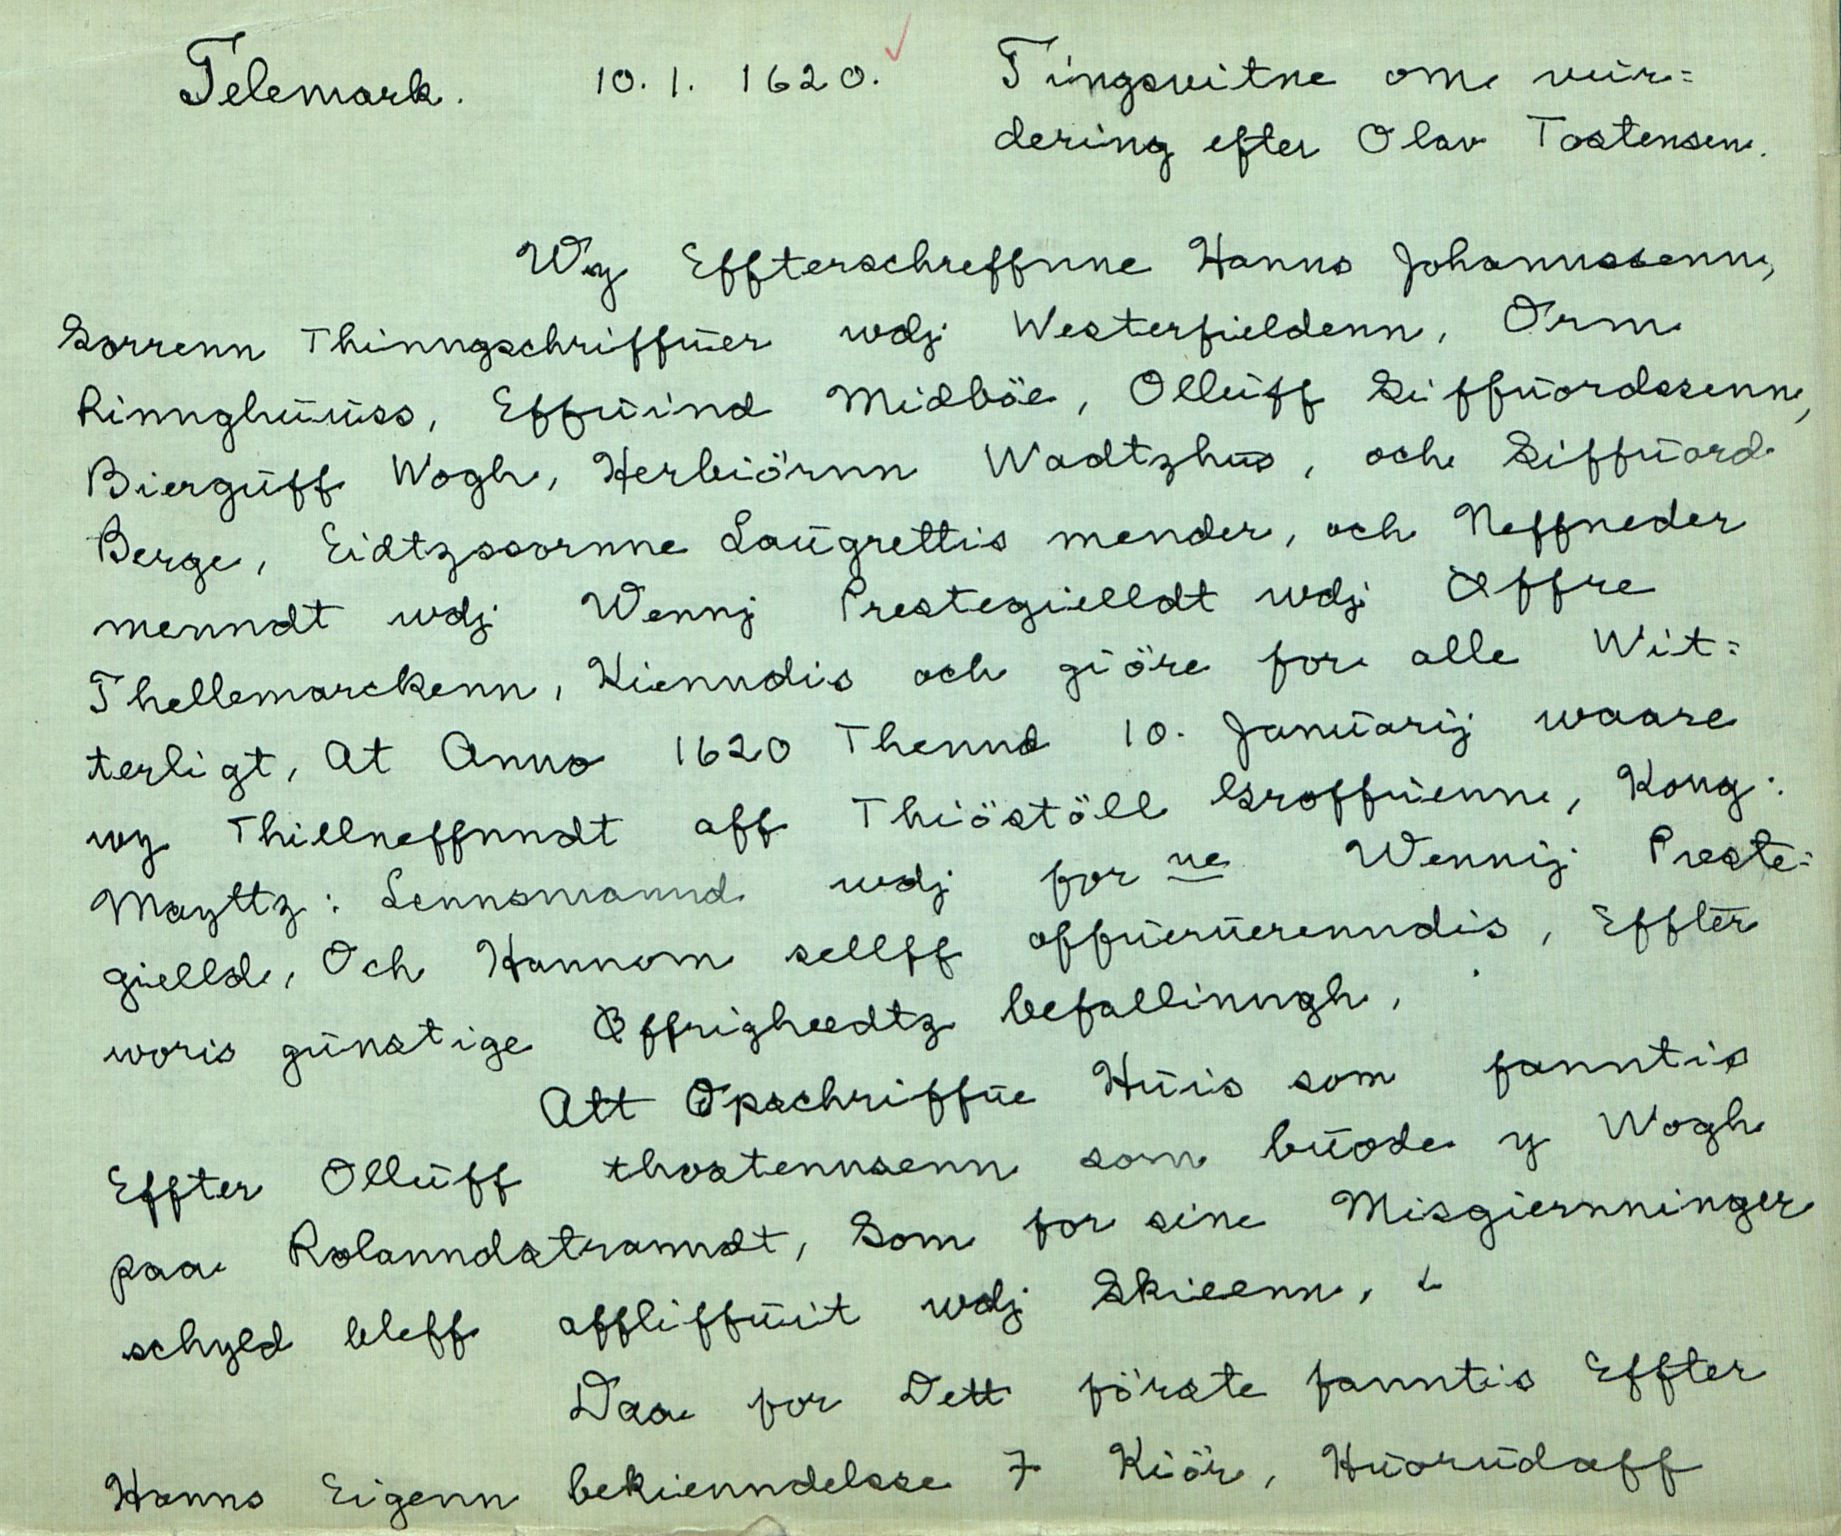 Telemark. 10. 1. 1620. Tingsvitne om vür=
dering efter Olav Tostensen.
Wy Effterschreffnne Hanns Johannssenn,
Sorrenn Thinngschriffuer wdj Westerfieldenn, Orm
Rinnghuuss, Effuind Midböe, Olluff Siffuordssenn,
Bierguff Wogh, Herbiörnn Wadtzhus, och Siffuord
Berge, Eidtzsoornne Laugrettis mender, och Neffneder
menndt wdj Wennj Prestegielldt wdj Øffre
Thellemarckenn, Kienndis och giöre for alle Wit=
terligt, At Anno 1620 Thennd 10. Januarij waare
wy Thillneffnndt aff Thiöstöll Groffuenn, Kong:
Mayttz: Lennsmannd wdj for ne Wennij Preste=
gielld, Och Hannom sellff offueruerenndis, Effter
woris günstige Øffrigheedtz befallinngh,
Att Opschriffue Huis som fanntis
Effter Olluff thostennsenn som buode y Wogh
paa Rolanndstranndt, Som for sine Misgiernninger
schyld bleff affliffuit wdj Skieenn,
Daa for Dett förste fanntis Effter
Hanns Eigenn bekienndelsse 7 Kiör, Huorudaff